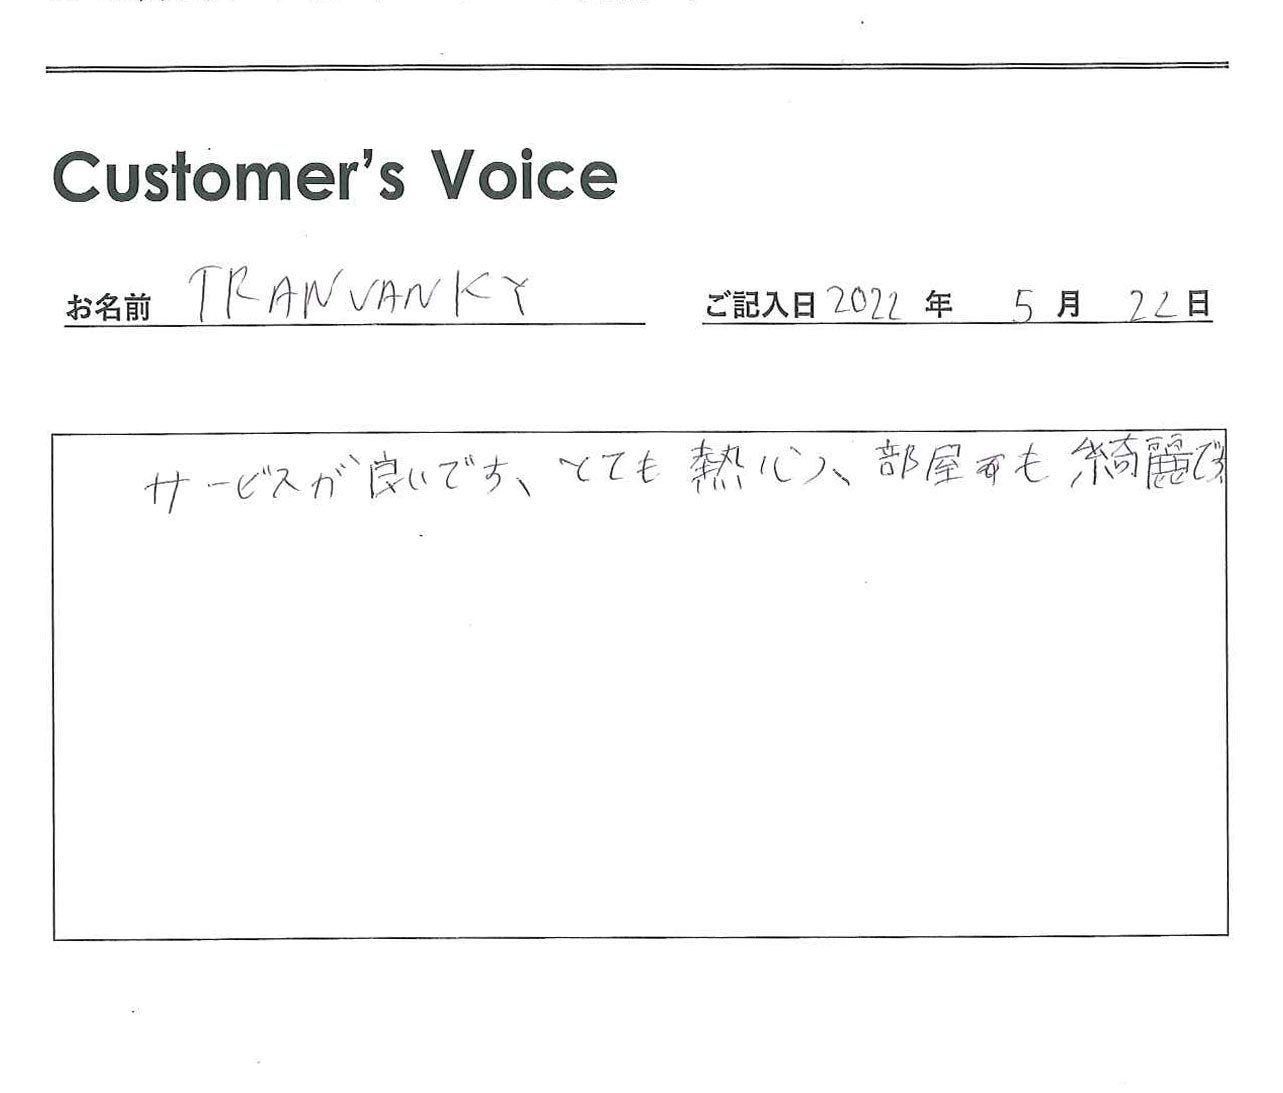 Customer's Voice
お名前 TRAN VAN KY
ご記入日 2022 年 5 月 22 日
サービスが良いです、とても熱心、部屋も綺麗です